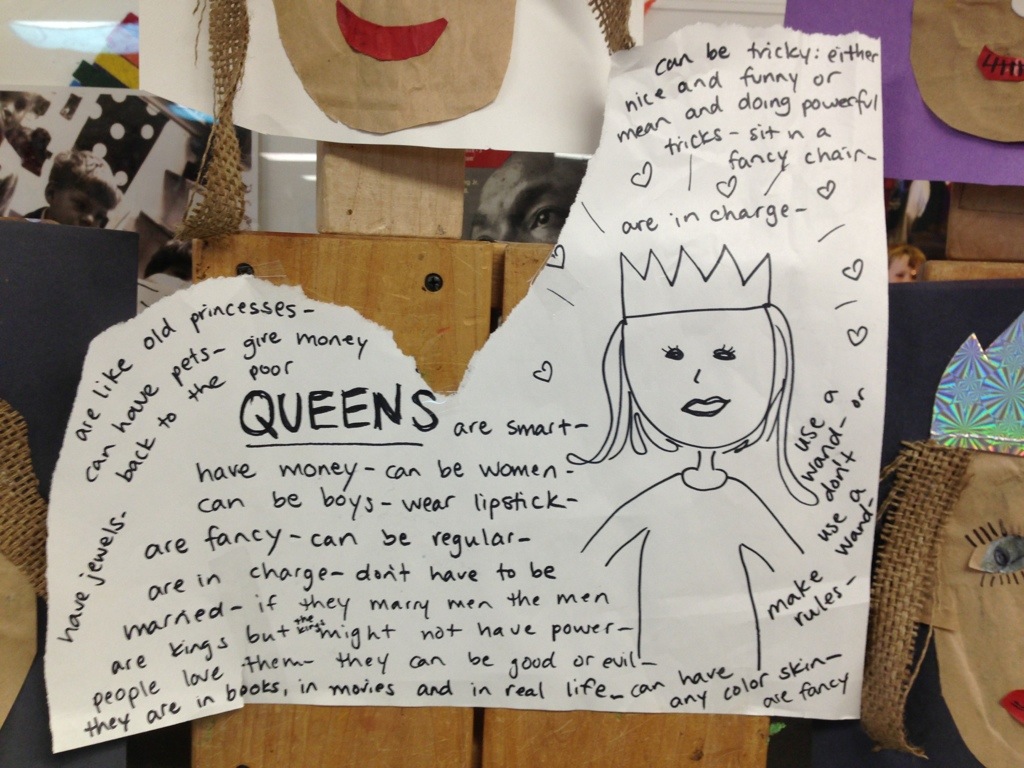 can be tricky: either
nice and funny or
mean and doing powerful
tricks - sit n a
fancy chair -
are in charge -
are like old princesses -
can have pets - give money
back to the poor
have jewels -
QUEENS are smart -
have money - can be women -
can be boys - wear lipstick -
are fancy - can be regular -
are in charge - don't have to be
married - if they marry men the men
are kings but the kings might not have power -
people love them - they can be good or evil -
they are in books, in movies and in real life - can have
any color skin -
are fancy
use a
wand - or
don't
use a
wand -
make
rules -